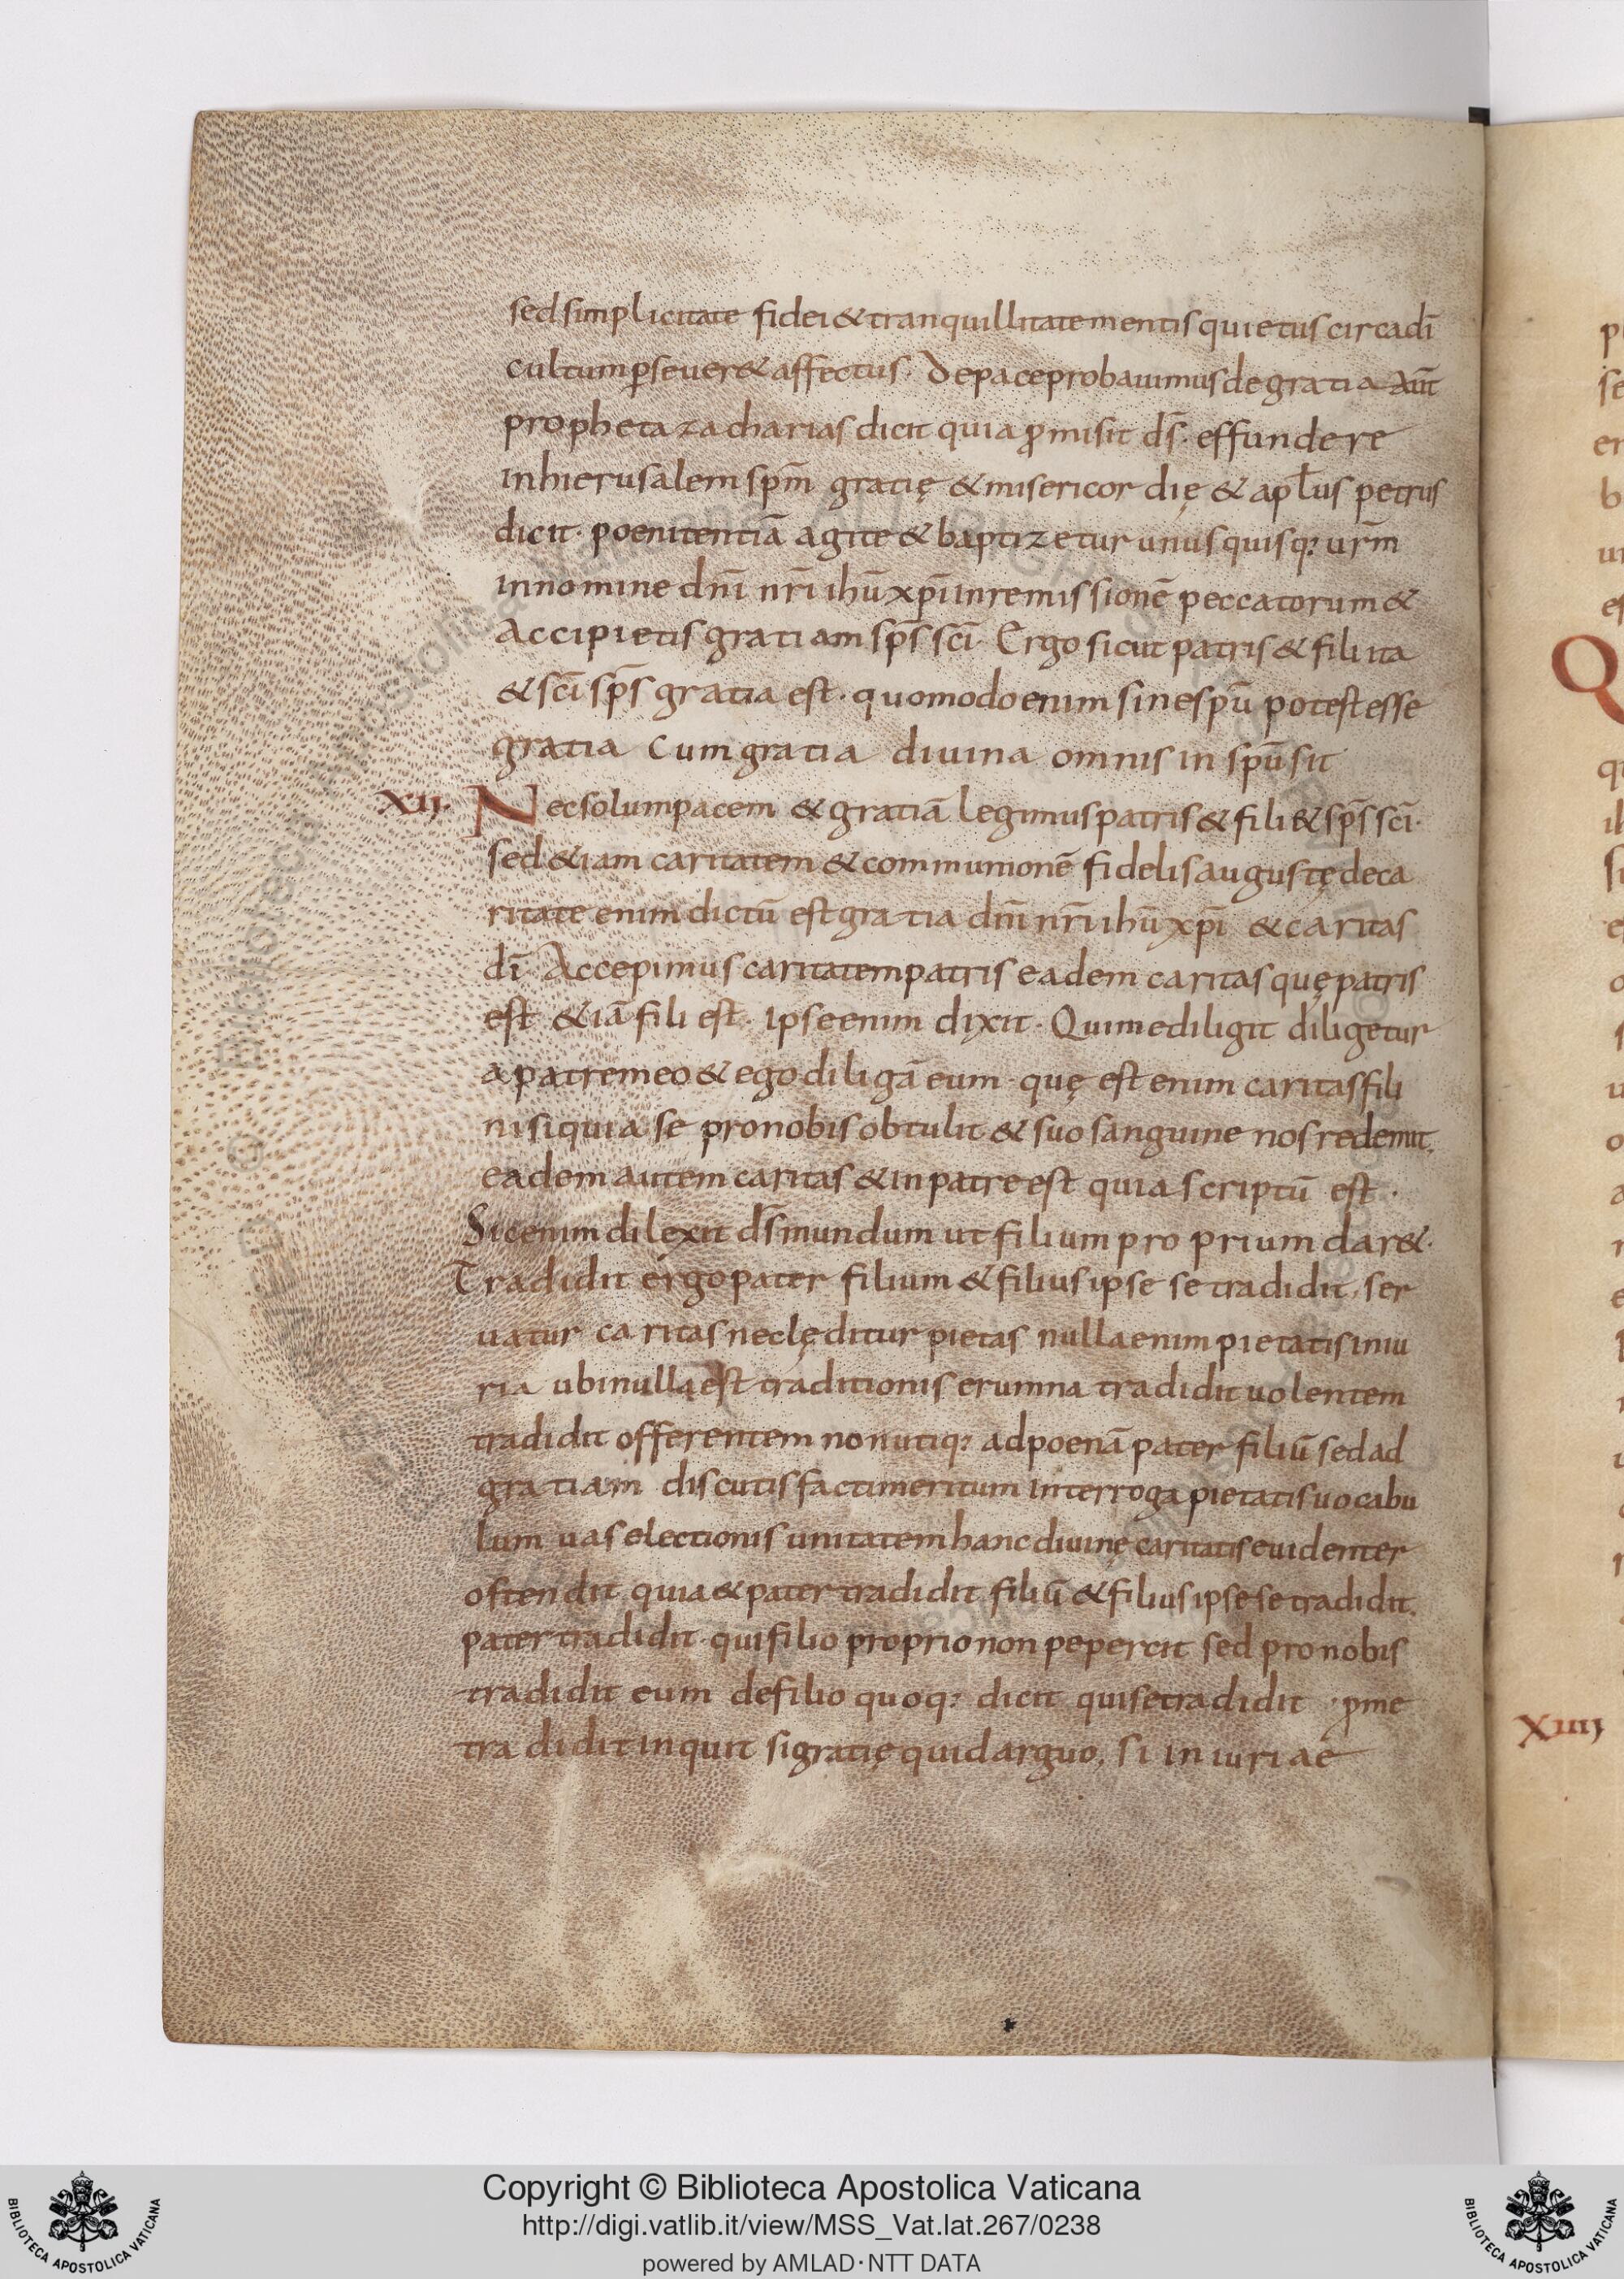 sed simplicitate fidei & tranquillitate mentis quietus circa dī
cultum ꝑseuer& affectus · De pace probauimus de gratia aūt
propheta zacharias dicit quia ꝓmisit d̄s · effundere
in hierusalem sp̄m gratię & misericordię & apl̄us petrus
dicit · poenitentiā agite & baptizetur unus quisq; ur̄m
in nomine dn̄i nr̄i ihū xp̄i in remissionē peccatorum &
Accipietis gratiam sp̄s sc̄i · Ergo sicut patris & fili ita
& sc̄i sp̄s gratia est · quomodo enim sine spū potest esse
gratia Cum gratia diuina omnis in spū sit
XII. Nec solum pacem & gratiā legimus patris & fili & sp̄s sc̄i ·
sed &iam caritatem & communionē fidelis auguste̜ de ca
ritate enim dictū est gratia dn̄i nr̄i ihū xp̄i & caritas
dī Accepimus caritatem patris eadem caritas quę patris
est &iā fili est · ipse enim dixit · Qui me diligit diligetur
a patre meo & ego diligā eum · quę est enim caritas fili
nisi quia se pro nobis obtulit & suo sanguine nos redemit,
eadem autem caritas & in patre est quia scriptū est ·
Sic enim dilexit d̄s mundum ut filium proprium dar& ·
Tradidit ergo pater filium & filius ipse se tradidit, ser
uatur caritas nec lęditur pietas nulla enim pietatis iniu
ria ubi nulla est traditionis erumna tradidit uolentem
tradidit offerentem non utiq; ad poenā pater filiū sed ad
gratiam discutis facti meritum interroga pietatis uocabu
lum uas electionis unitatem hanc diuinę caritatis euidenter
ostendit quia & pater tradidit filiū & filius ipse se tradidit,
pater tradidit · qui filio proprio non pepercit sed pro nobis
tradidit eum de filio quoq; dicit qui se tradidit · ꝓ me
tradidit inquit si gratię quid arguo, si iniuriae
Q
XIIII
Copyright © Biblioteca Apostolica Vaticana
http://digi.vatlib.it/view/MSS_Vat.lat.267/0238
powered by AMLAD · NTT DATA
BIBLIOTECA APOSTOLICA VATICANA
BIBLIOTECA APOSTOLICA VATICANA